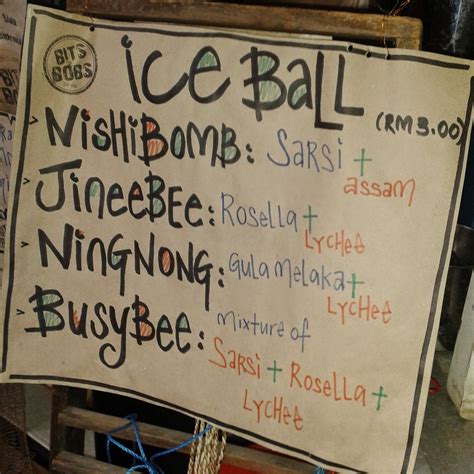 BITS
BOBS
ICE BALL
(RM3.00)
> NISHIBOMB: SARSI +
ASSAM
> JINEEBEE: ROSELLA +
LYCHEE
> NINGNONG: GULA MELAKA +
LYCHEE
> BUSYBEE: MIXTURE OF
SARSI + ROSELLA +
LYCHEE